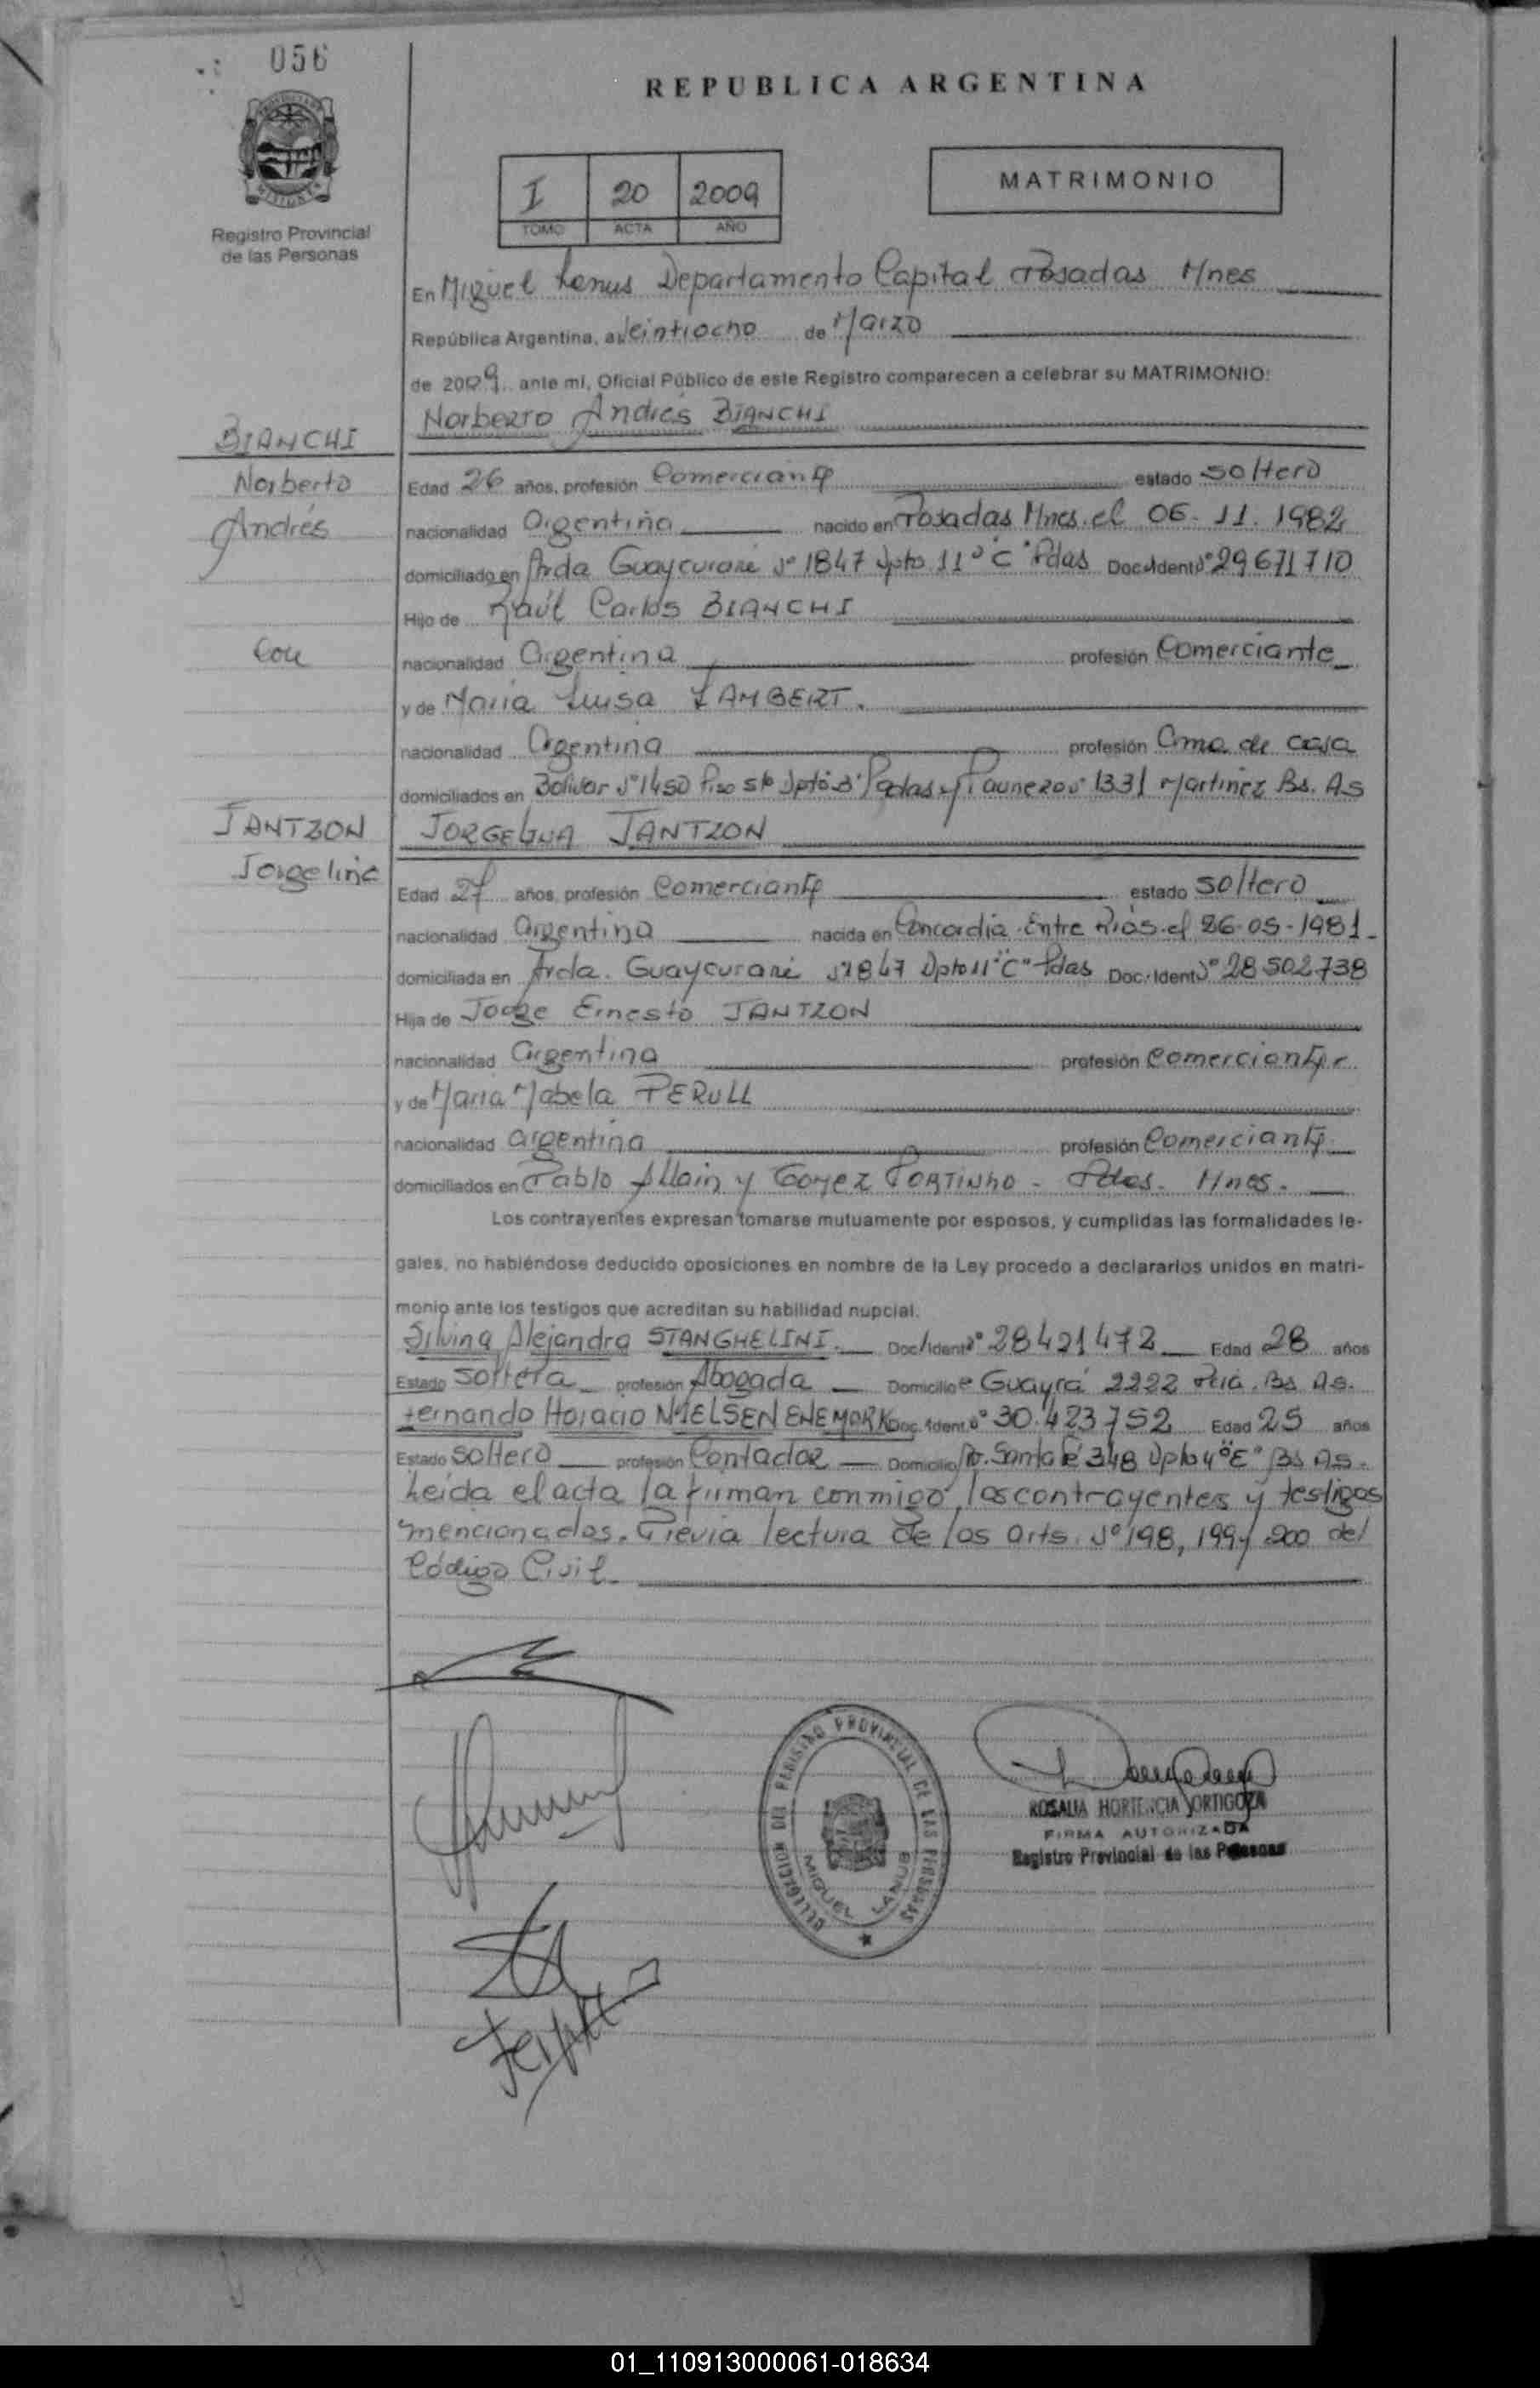 056
REPUBLICA ARGENTINA
I 20 2009
TOMO ACTA AÑO
MATRIMONIO
Registro Provincial
de las Personas
En Miguel Lanus Departamento Capital Posadas Mnes
República Argentina, a Veintiocho de Marzo
de 2009 ante mí, Oficial Público de este Registro comparecen a celebrar su MATRIMONIO:
Norberto Andrés BIANCHI
BIANCHI
Norberto
Andrés
Edad 26 años, profesión Comerciante estado soltero
nacionalidad Argentina nacido en Posadas Mnes. el 06-11.1982
domiciliado en Avda Guaycurarí Nº 1847 Dpto 11º "C" Pdas Doc. Ident Nº 29671710
Hijo de Raúl Carlos BIANCHI
con
nacionalidad Argentina profesión Comerciante
y de María Luisa LAMBERT.
nacionalidad Argentina profesión Ama de casa
domiciliados en Bolívar Nº 1450 Piso 5to Dpto Pdas y Paunero Nº 1331 Martinez Bs. As
JANTZON
Jorgelina
JORGELINA JANTZON
Edad 27 años, profesión Comerciante estado soltero
nacionalidad argentina nacida en Concordia Entre Rios el 26-05-1981
domiciliada en Avda. Guaycurarí 1847 Dpto 11º "C" Pdas Doc. Ident Nº 28502738
Hija de Jorge Ernesto JANTZON
nacionalidad Argentina profesión Comerciante
y de María Mabela PERULL
nacionalidad argentina profesión Comerciante
domiciliados en Pablo Allain y Gomez PORTINHO - Pdas. Mnes.
Los contrayentes expresan tomarse mutuamente por esposos, y cumplidas las formalidades le-
gales, no habiéndose deducido oposiciones en nombre de la Ley procedo a declararlos unidos en matri-
monio ante los testigos que acreditan su habilidad nupcial.
Silvina Alejandra STANGHELINI. Doc/Ident Nº 28421472 Edad 28 años
Estado soltera profesión Abogada Domicilio Guayrá 2222 Bs As.
Fernando Horacio NIELSEN ENEMARK Doc. Ident. Nº 30.423752 Edad 25 años
Estado soltero profesión Contador Domicilio Av. Santa Fé 348 Dpto 4º "E" Bs As.
Leída el acta la firman conmigo, los contrayentes y testigos
mencionados. Previa lectura de los arts. Nº 198, 199 y 200 del
Código Civil
DELEGACION DEL REGISTRO PROVINCIAL DE LAS PERSONAS
MIGUEL LANUS
ROSALIA HORTENCIA ORTIGOZA
FIRMA AUTORIZADA
Registro Provincial de las Personas
01_110913000061-018634